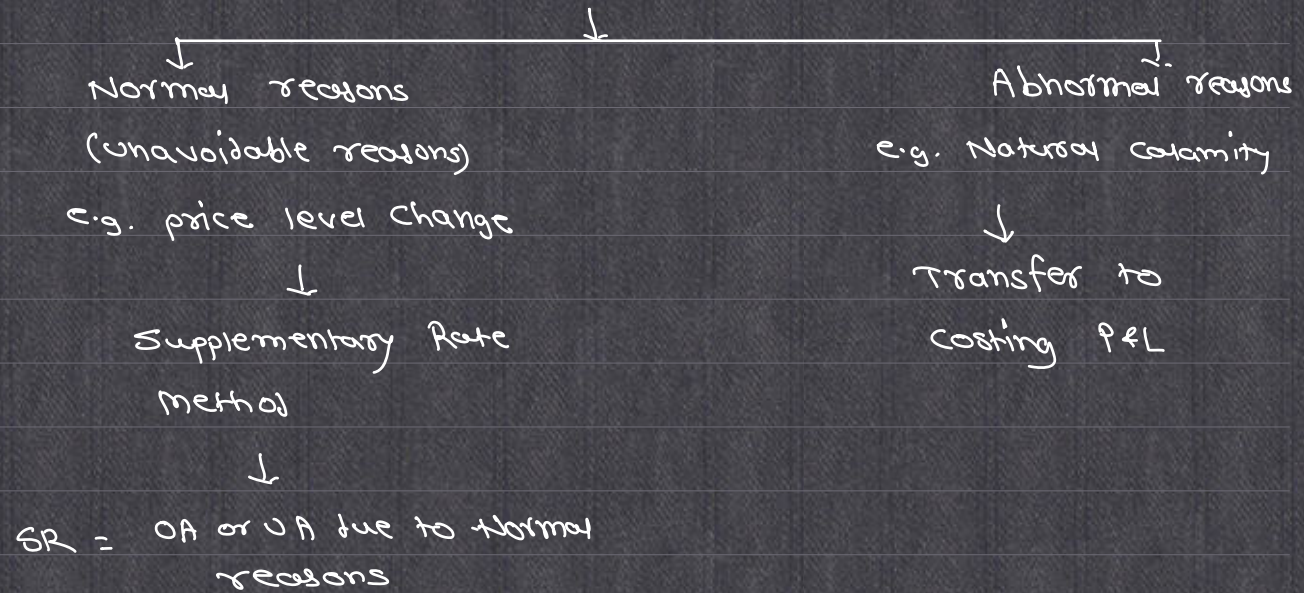 Normal reasons
(unavoidable reasons)
e.g. price level change
Supplementary Rate
Method
SR = OA or UA due to Normal
reasons
Abnormal reasons
e.g. Natural calamity
Transfer to
costing P&L